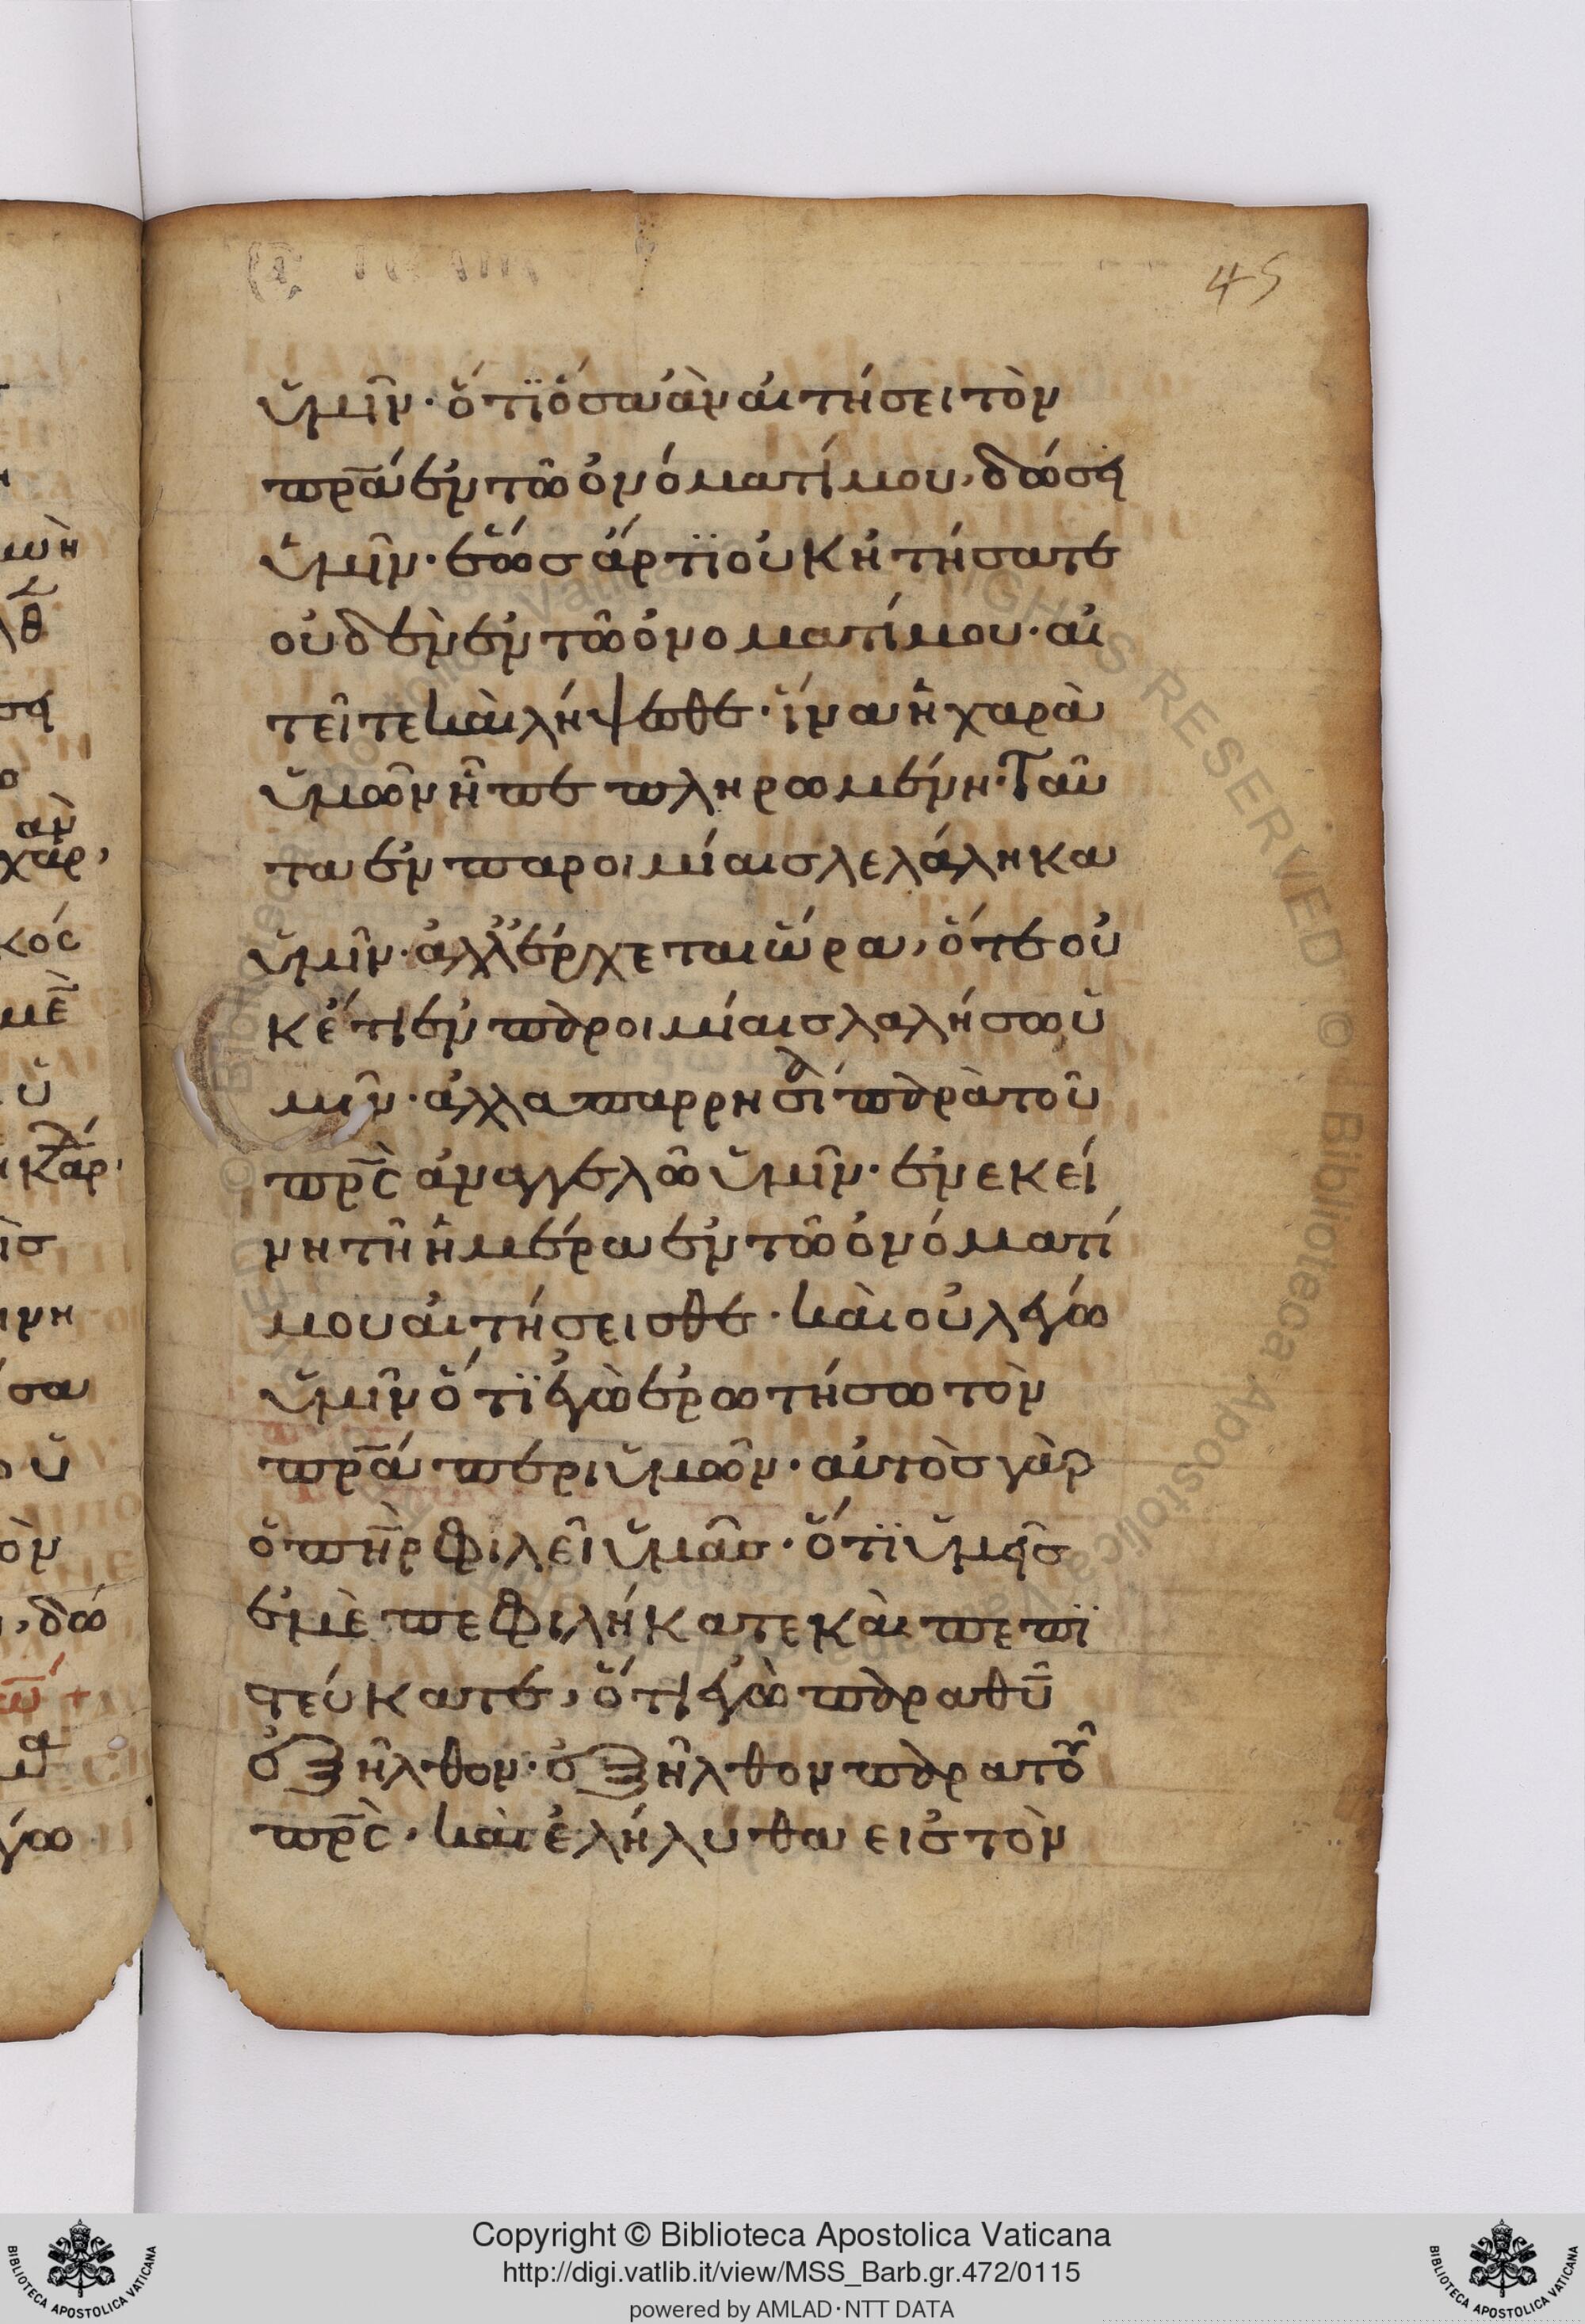 45
ὑμῖν· ὅτι ὅσα ἂν αἰτήσει τὸν
πρ̅α ἐν τῶ ὀνόματί μου, δώσει
ὑμῖν· ἕως ἄρτι οὐκ ἠτήσατε
οὐδὲν ἐν τῶ ὀνοματί μου· αἰ
τεῖτε καὶ λήψεσθε· ἵνα ἡ χαρὰ
ὑμῶν ἦ πεπληρωμένη· Ταῦ
τα ἐν παροιμίαις λελάληκα
ὑμῖν· ἀλλ' ἔρχεται ὥρα, ὅτε οὐ
κέτι ἐν παροιμίαις λαλήσω ὑ
μῖν· ἀλλα παρρησία παρὰ τοῦ
πρ̅ς ἀναγγελῶ ὑμῖν· ἐν ἐκεί
νη τῆ ἡμέρα ἐν τῶ ὀνόματί
μου αἰτήσεισθε· καὶ οὐ λέγω
ὑμῖν ὅτι ἐγὼ ἐρωτήσω τὸν
πρ̅α περι ὑμῶν· αὐτὸς γὰρ
ὁ πη̅ρ φιλεῖ ὑμᾶς· ὅτι ὑμεῖς
ἐμὲ πεφιλήκατε καὶ πεπι
στεύκατε, ὅτι ἐγὼ παρα θυ̅
ἐξῆλθον· ἐξῆλθον παρα τοῦ
πρ̅ς· καὶ ἐλήλυθα εις τὸν
Copyright © Biblioteca Apostolica Vaticana
http://digi.vatlib.it/view/MSS_Barb.gr.472/0115
powered by AMLAD·NTT DATA
BIBLIOTECA APOSTOLICA VATICANA
BIBLIOTECA APOSTOLICA VATICANA